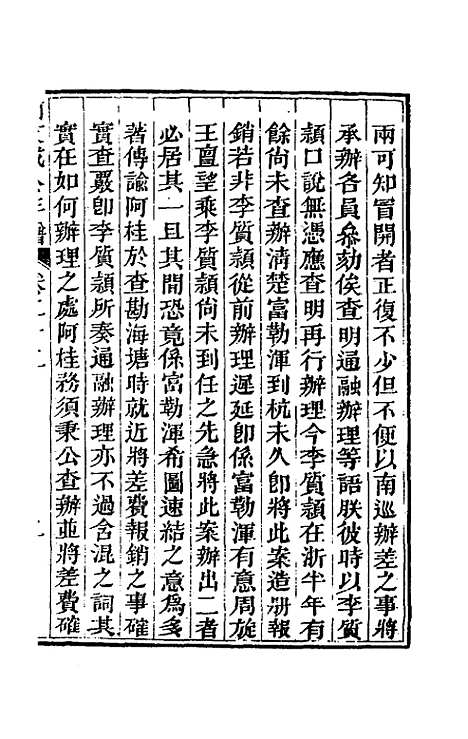 兩可知冒開者正復不少但不便以南巡辦差之事將
承辦各員叅劾俟查明通融辦理等語朕彼時以李質
頴口說無憑應查明再行辦理今李質頴在浙半年有
餘尚未查辦清楚富勒渾到杭未久卽將此案造册報
銷若非李質頴從前辦理遲延卽係富勒渾有意周旋
王亶望乘李質頴尚未到任之先急將此案辦出二者
必居其一且其間恐竟係富勒渾希圖速結之意爲多
著傳諭阿桂於查勘海塘時就近將差費報銷之事確
實查覈卽李質頴所奏通融辦理亦不過含混之詞其
實在如何辦理之處阿桂務須秉公查辦並將差費確